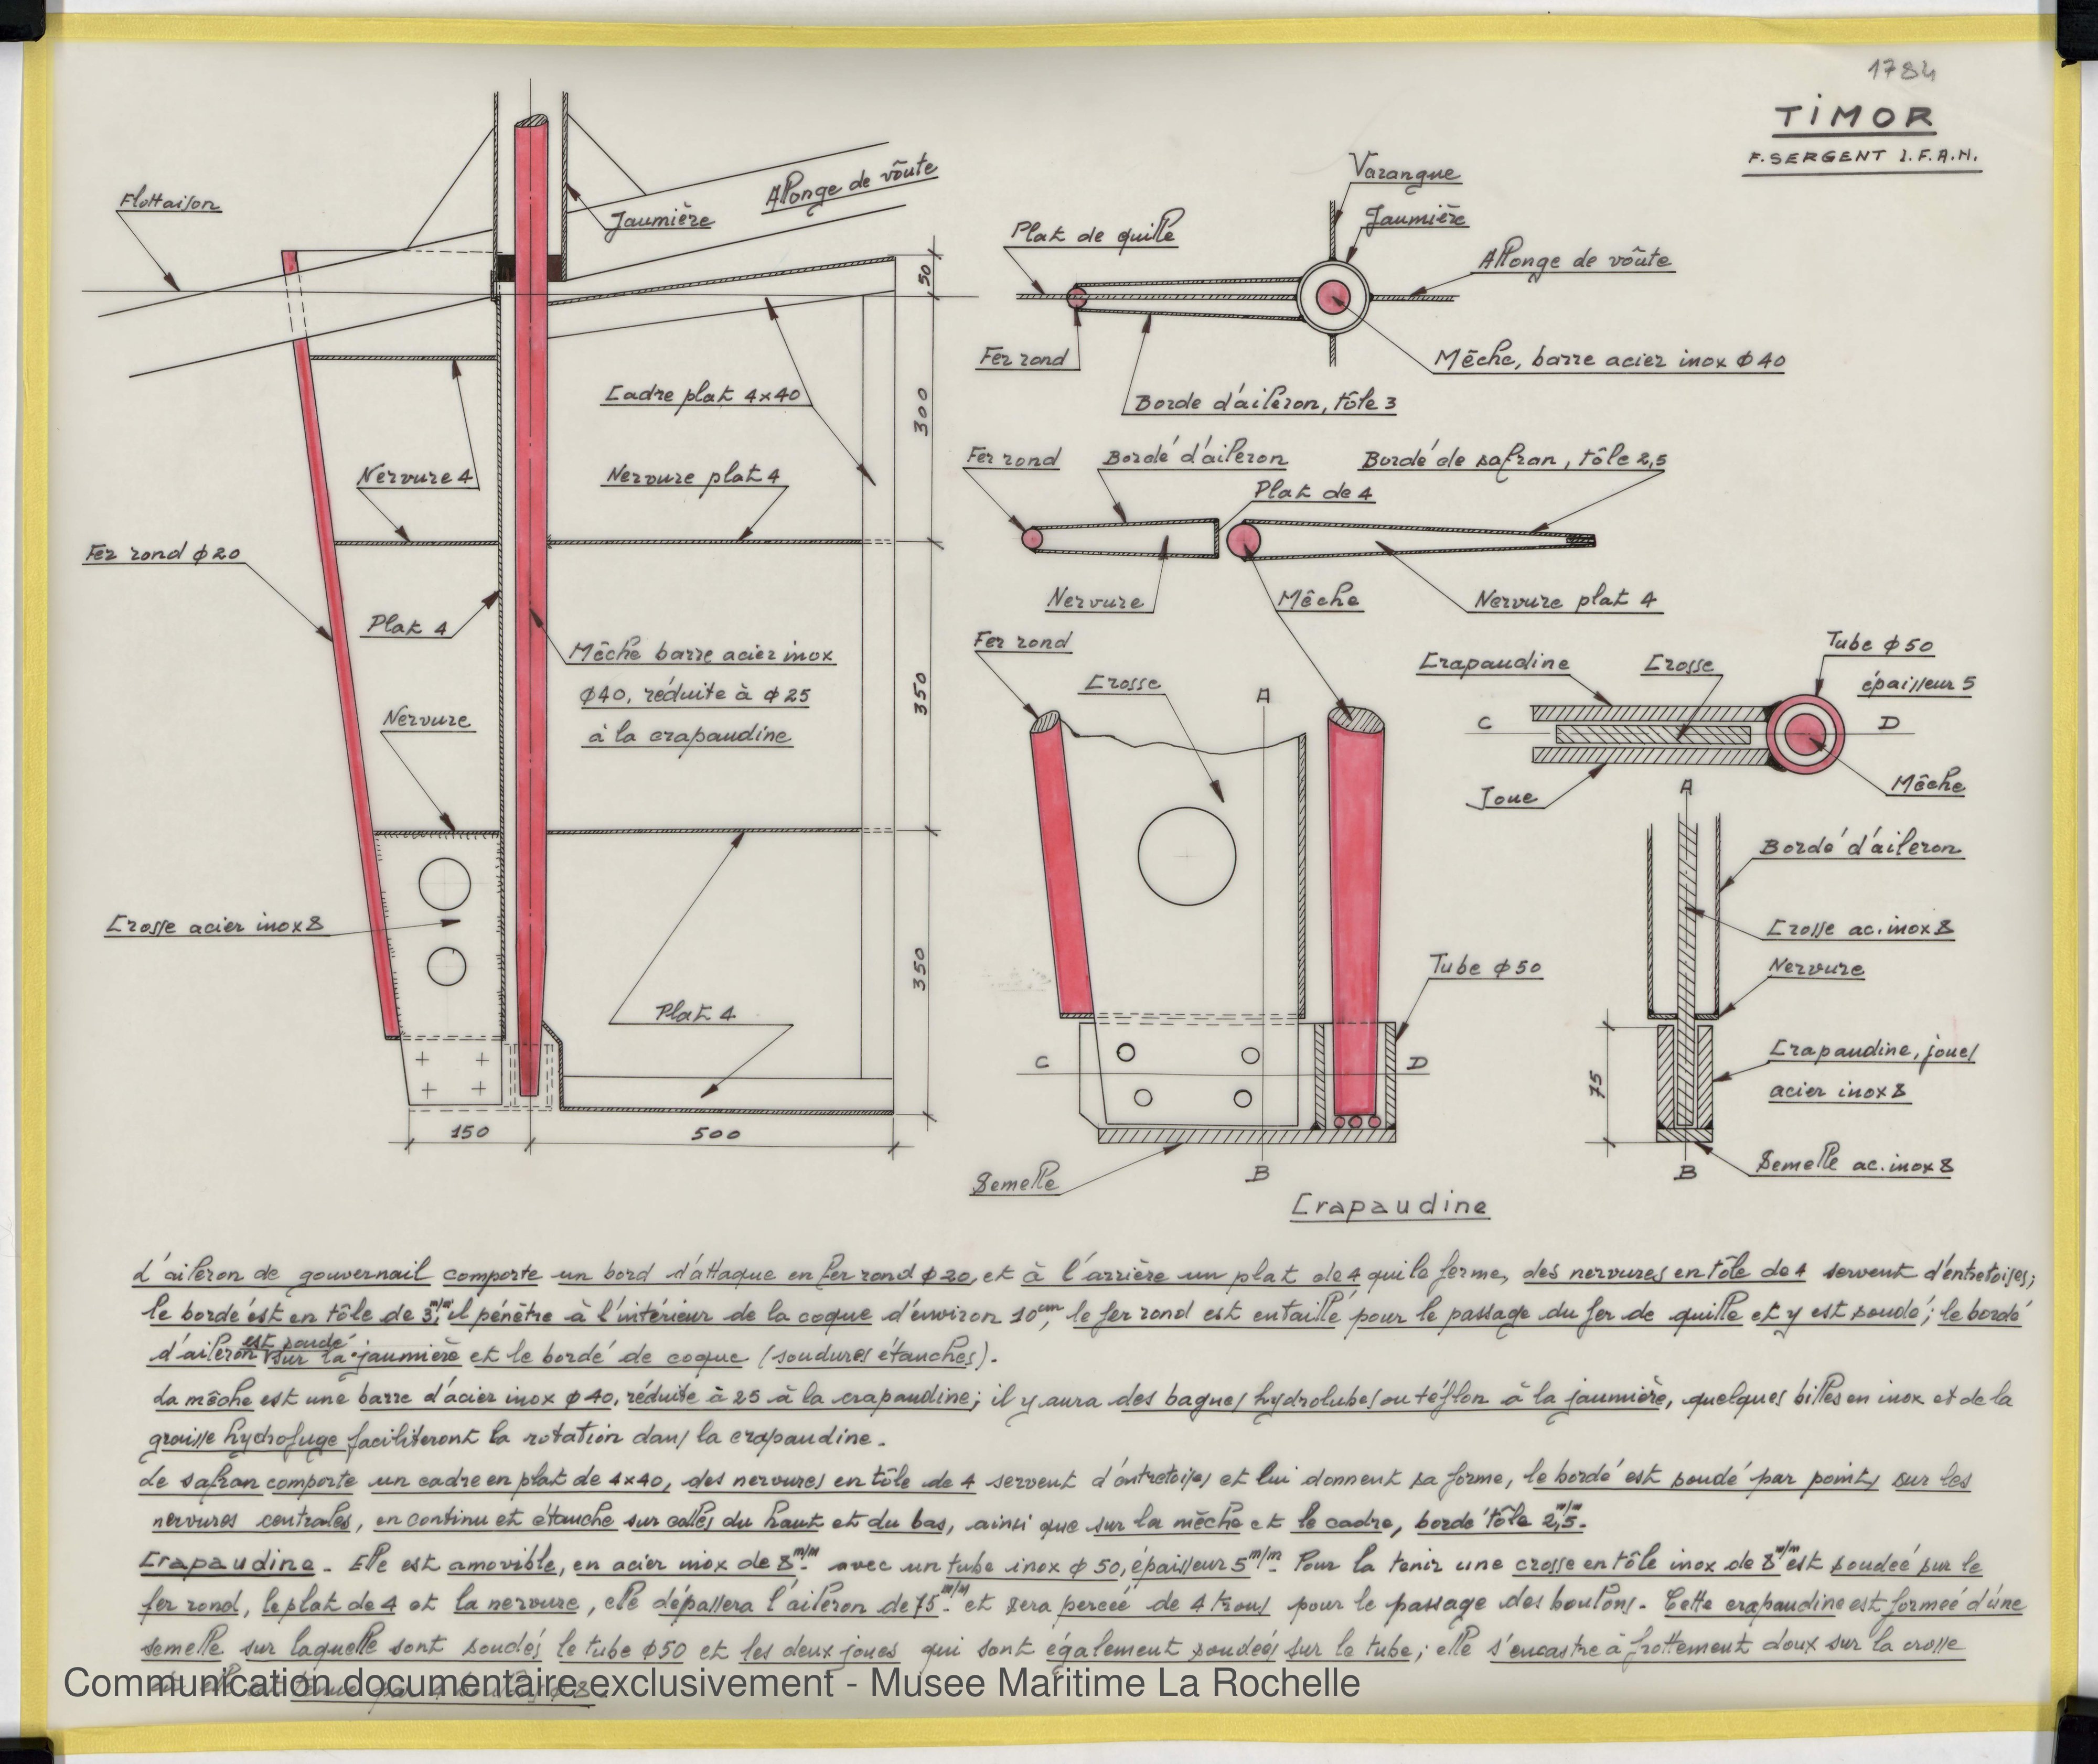 1784
TIMOR
F. SERGENT I.F.A.N.
Flottaison
Jaumière
Allonge de voûte
50
Cadre plat 4x40
300
Nervure 4
Nervure plat 4
Fer rond ϕ20
Plat 4
Mêche barre acier inox
ϕ40, réduite à ϕ25
à la crapaudine
350
Nervure
Crosse acier inox 8
350
Plat 4
150
500
Varangue
Jaumière
Plat de quille
Allonge de voûte
Fer rond
Mêche, barre acier inox ϕ40
Borde d'aileron, tôle 3
Fer rond
Bordé d'aileron
Bordé de safran, tôle 2,5
Plat de 4
Nervure
Mêche
Nervure plat 4
Fer rond
Crosse
A
C
D
Tube ϕ50
Semelle
B
Crapaudine
Crapaudine
Crosse
Tube ϕ50
épaisseur 5
C
D
Joue
Mêche
A
Bordé d'aileron
Crosse ac. inox 8
Nervure
75
Crapaudine, joues
acier inox 8
Semelle ac. inox 8
B
L'aileron de gouvernail comporte un bord d'attaque en fer rond ϕ20, et à l'arrière un plat de 4 qui le ferme, des nervures en tôle de 4 servent d'entretoises;
le bordé est en tôle de 3m/m, il pénètre à l'intérieur de la coque d'environ 10cm, le fer rond est entaillé pour le passage du fer de quille et y est soudé; le bordé
d'aileron est soudé sur la jaumière et le bordé de coque (soudures étanches).
La mêche est une barre d'acier inox ϕ40, réduite à 25 à la crapaudine; il y aura des bagues hydrolubes ou téflon à la jaumière, quelques billes en inox et de la
graisse hydrofuge faciliteront la rotation dans la crapaudine.
Le safran comporte un cadre en plat de 4x40, des nervures en tôle de 4 servent d'entretoises et lui donnent sa forme, le bordé est soudé par points sur les
nervures centrales, en continu et étanche sur celles du haut et du bas, ainsi que sur la mêche et le cadre, bordé tôle 2,5m/m.
Crapaudine - Elle est amovible, en acier inox de 8m/m avec un tube inox ϕ50, épaisseur 5m/m. Pour la tenir une crosse en tôle inox de 8m/m est soudée sur le
fer rond, le plat de 4 et la nervure, elle dépassera l'aileron de 75m/m et sera percée de 4 trous pour le passage des boulons. Cette crapaudine est formée d'une
semelle sur laquelle sont soudés le tube ϕ50 et les deux joues qui sont également soudées sur le tube; elle s'encastre à frottement doux sur la crosse
Communication documentaire exclusivement - Musee Maritime La Rochelle